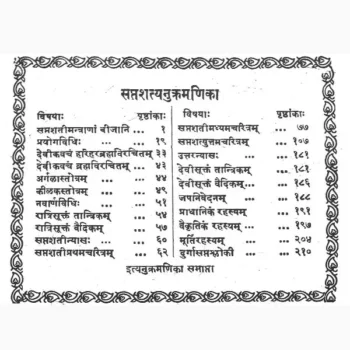 सप्तशत्यनुक्रमणिका
विषयाः पृष्ठांकाः
सप्तशतीमन्त्राणां बीजानि १
प्रयोगविधिः १९
देवीकवचं हरिहरब्रह्मविरचितम् ३३
देवीकवचं ब्रह्मविरचितम् ४३
अर्गळास्तोत्रम् ४४
कीलकस्तोत्रम् ४९
नवार्णविधिः ५१
रात्रिसूक्तं तान्त्रिकम् ५४
रात्रिसूक्तं वैदिकम् ५७
सप्तशतीन्यासः ६०
सप्तशतीप्रथमचरित्रम् ६२
विषयाः पृष्ठांकाः
सप्तशतीमध्यमचरित्रम् ७७
सप्तशत्युत्तमचरित्रम् १०७
उत्तरन्यासः १८१
देवीसूक्तं तान्त्रिकम् १८१
देवीसूक्तं वैदिकम् १८६
जपनिवेदनम् १८८
प्राधानिकं रहस्यम् १९१
वैकृतिकं रहस्यम् १९७
मूर्तिरहस्यम् २०४
दुर्गासप्तश्लोकी २१०
इत्यनुक्रमणिका समाप्ता